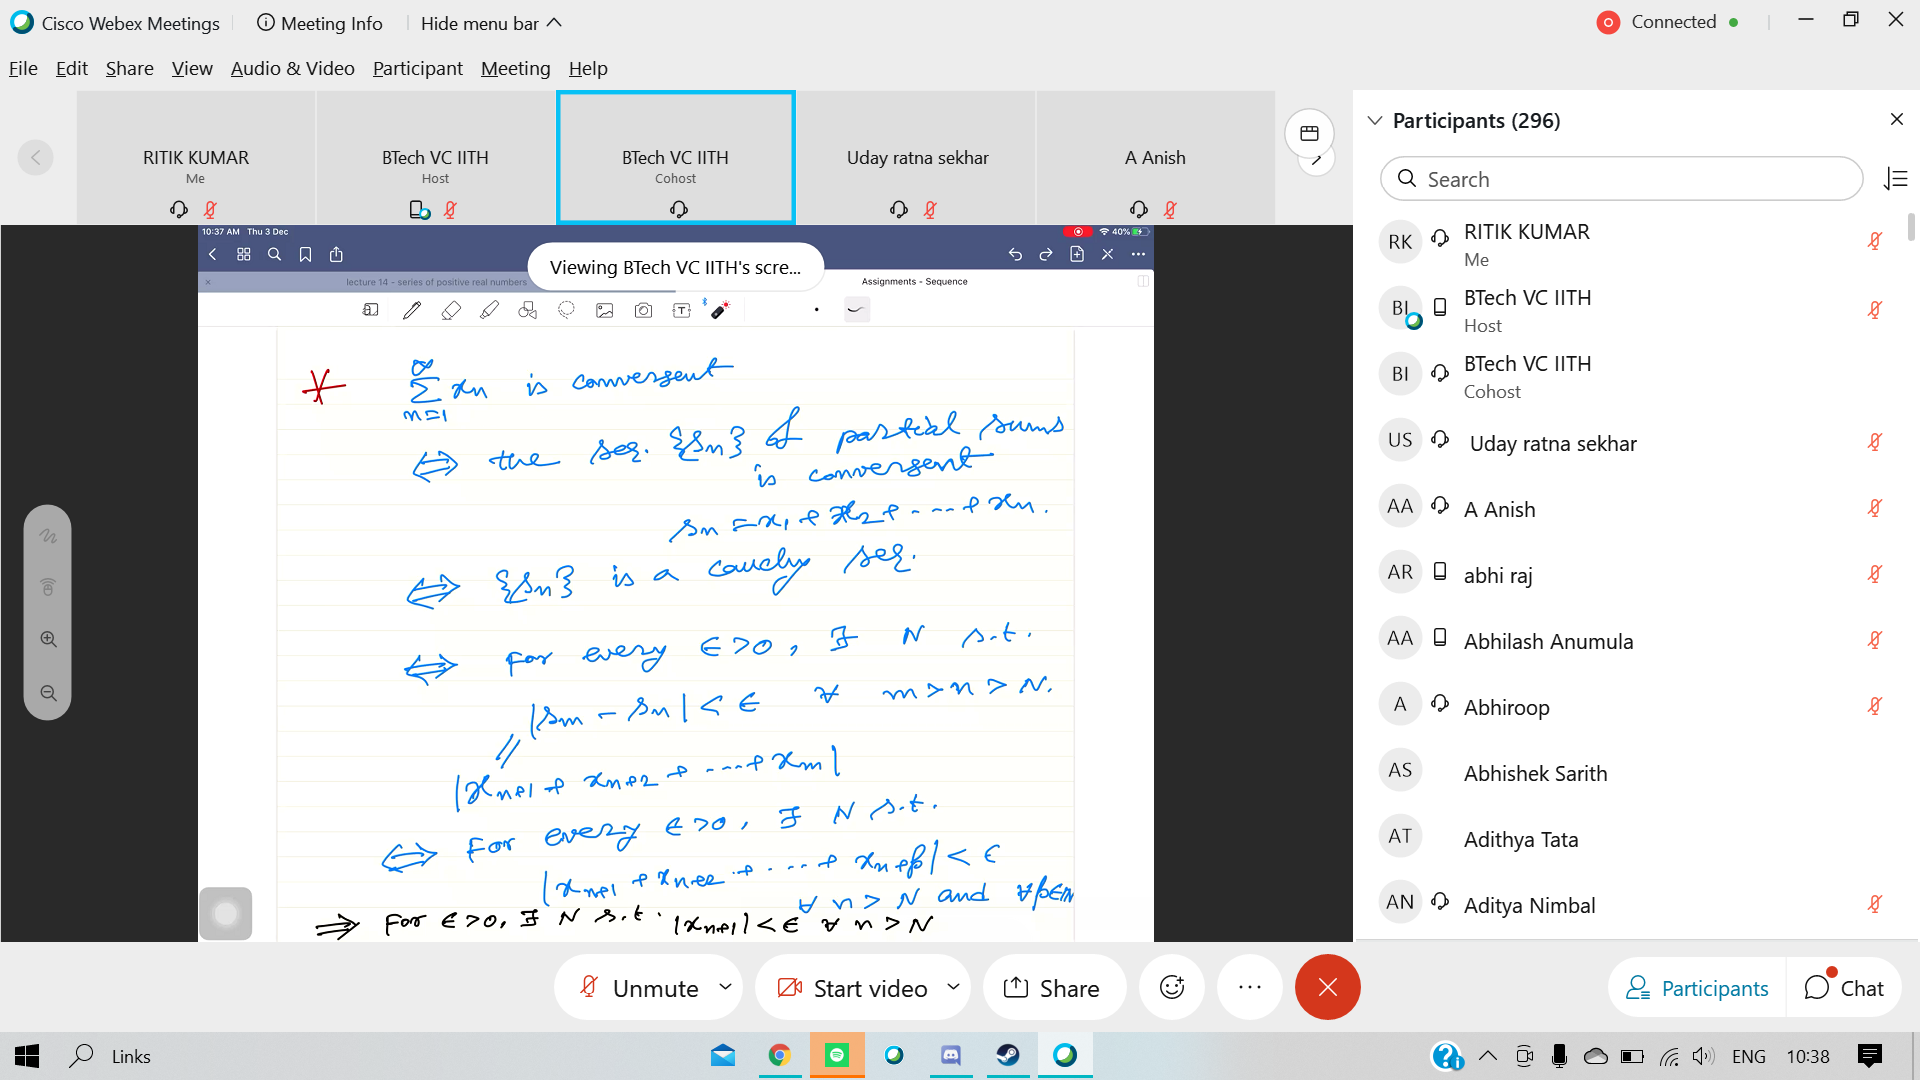 Cisco Webex Meetings Meeting Info Hide menu bar Connected
File Edit Share View Audio & Video Participant Meeting Help
RITIK KUMAR
Me
BTech VC IITH
Host
BTech VC IITH
Cohost
Uday ratna sekhar
A Anish
10:37 AM Thu 3 Dec
40%
Viewing BTech VC IITH's scre...
lecture 14 - series of positive real numbers
Assignments - Sequence
∑_{n=1}^{∞} xn is convergent
⇔ the seq. {Sn} of partial sums
is convergent
sn = x1 + x2 + ---- + xn.
⇔ {Sn} is a cauchy seq.
⇔ For every ∈ > 0, ∃ N s.t.
|Sm - Sn| < ∈ ∀ m > n > N.
//
|xn+1 + xn+2 + ---- + xm|
⇔ For every ∈ > 0, ∃ N s.t.
|xn+1 + xn+2 + ---- + xn+p| < ∈
∀ n > N and ∀ p∈N
⇒ For ∈ > 0, ∃ N s.t. |xn+1| < ∈ ∀ n > N
Participants (296)
Search
RK RITIK KUMAR
Me
BI BTech VC IITH
Host
BI BTech VC IITH
Cohost
US Uday ratna sekhar
AA A Anish
AR abhi raj
AA Abhilash Anumula
A Abhiroop
AS Abhishek Sarith
AT Adithya Tata
AN Aditya Nimbal
Unmute Start video Share
Participants Chat
Links
ENG 10:38